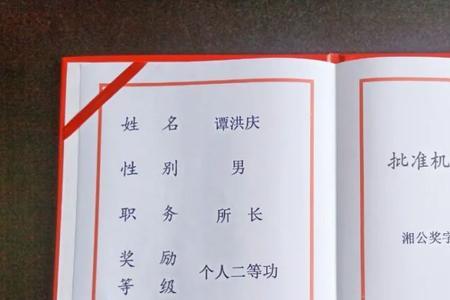 姓名 谭洪庆
性别 男
职务 所长
奖励
等级 个人二等功
批准机
湘公奖字